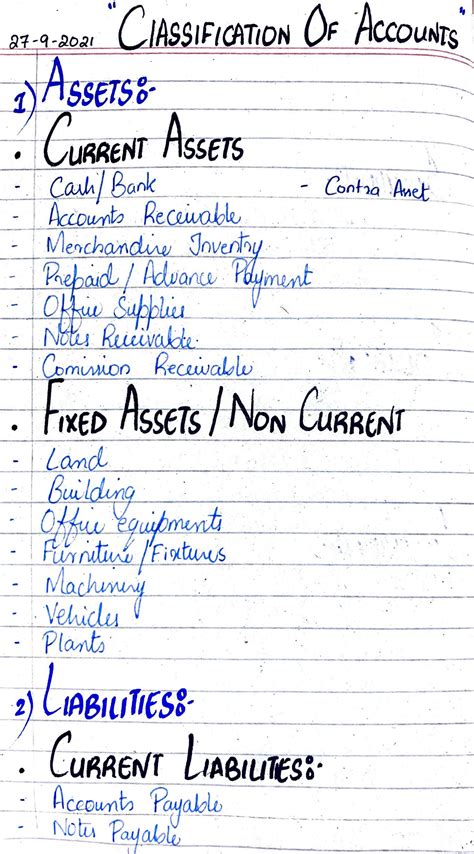 27-9-2021 "Classification Of Accounts"
1) Assets:-
• Current Assets
- Cash/Bank - Contra Asset
- Accounts Receivable
- Merchandise Inventry
- Prepaid / Advance Payment
- Office Supplies
- Notes Receivable.
- Comission Receivable
• Fixed Assets / Non Current
- Land
- Building
- Office equipments
- Furniture / Fixtures
- Machinery
- Vehicles
- Plants
2) Liabilities:-
• Current Liabilities:-
- Accounts Payable
- Notes Payable